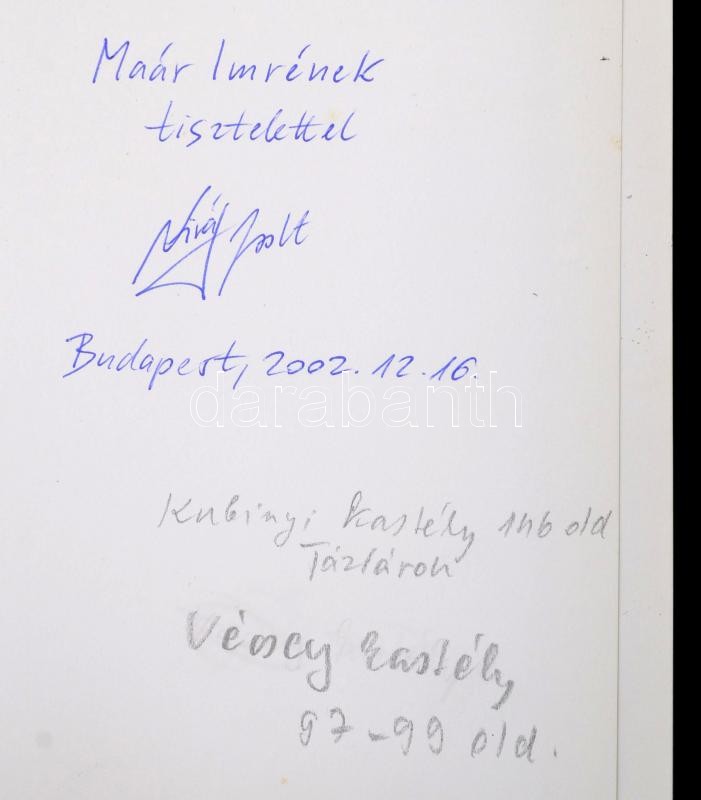 Maár Imrének
tisztelettel
Virág Zsolt
Budapest, 2002.12.16.
darabanth
Kubinyi kastély 146 old
Tázláron
Vécsey kastély
97-99 old.